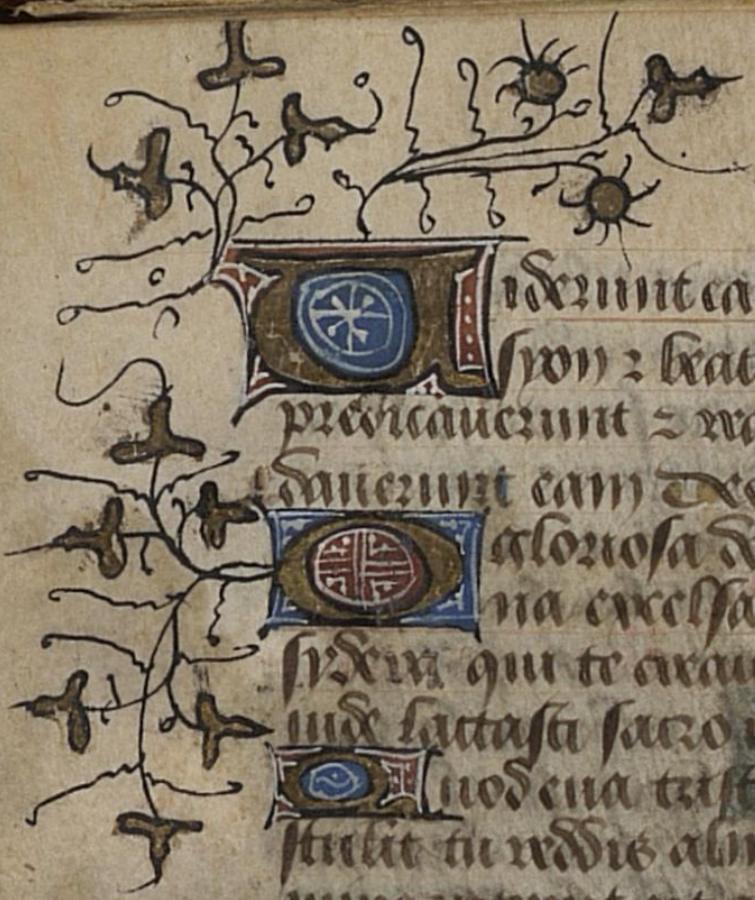 Uiderunt ea
syon ⁊ beat
predicauerunt ⁊ re
dauerunt eam
O gloriosa d
na excelsa
sydera qui te crea
uide lactasti sacro
Quod eua trist
stulit tu reddis alm